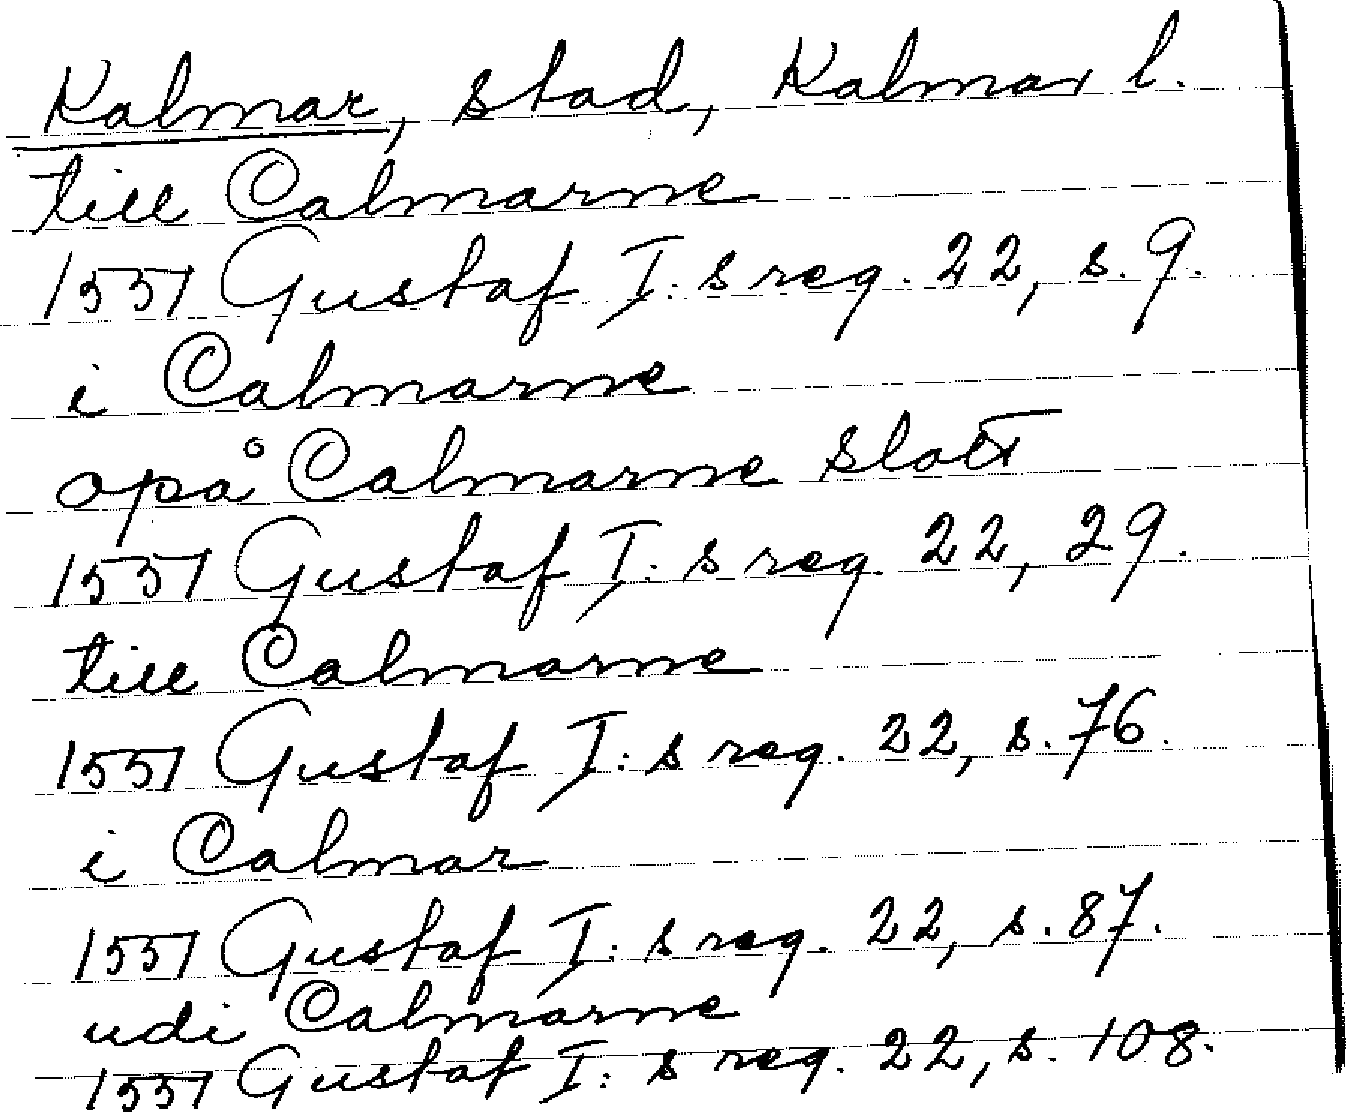 Kalmar, stad, Kalmar l.
till Calmarne
1551 Gustaf I:s reg. 22, s. 9.
i Calmarne
opå Calmarne slott
1551 Gustaf I:s reg. 22, 29.
till Calmarne
1551 Gustaf I:s reg. 22, s. 76.
i Calmar
1551 Gustaf I:s reg. 22, s. 87.
udi Calmarne
1551 Gustaf I:s reg. 22, s. 108.